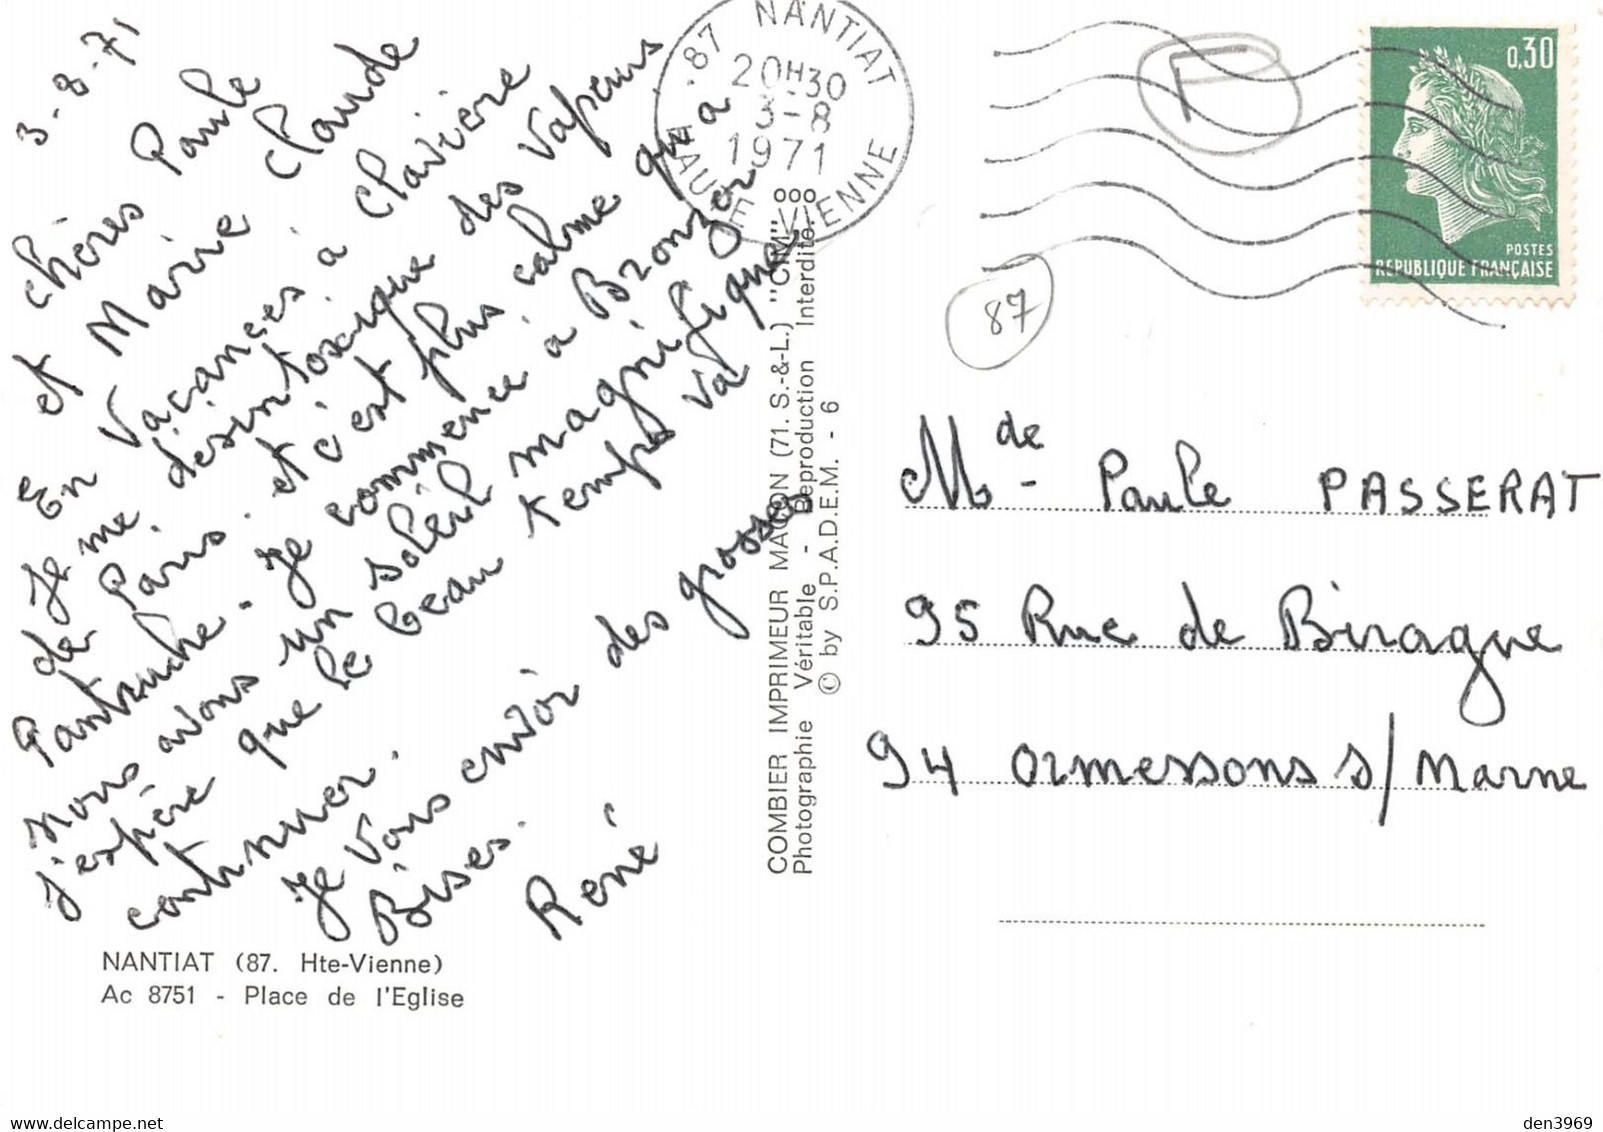 3-8-71
chères Paule
et Marie Claude
En Vacances à Clavière
Je me désintoxique des Vapeurs
de Paris. et c'est plus calme qu'a
Pantruche. Je commence à Bronzer
nous avons un soleil magnifique
j'espère que le beau temps va
continuer.
Je Vous envoi des grosses
Bises.
René
NANTIAT (87. Hte-Vienne)
Ac 8751 - Place de l'Eglise
COMBIER IMPRIMEUR MACON (71. S.-&-L.) "CIM"
Photographie Véritable - Reproduction Interdite
© by S.P.A.D.E.M. - 6
87 NANTIAT
20H30
3-8
1971
HAUTE VIENNE
0,30
POSTES
REPUBLIQUE FRANÇAISE
87
Mde - Paule PASSERAT
95 Rue de Biragne
94 Ormessons s/ Marne
den3969